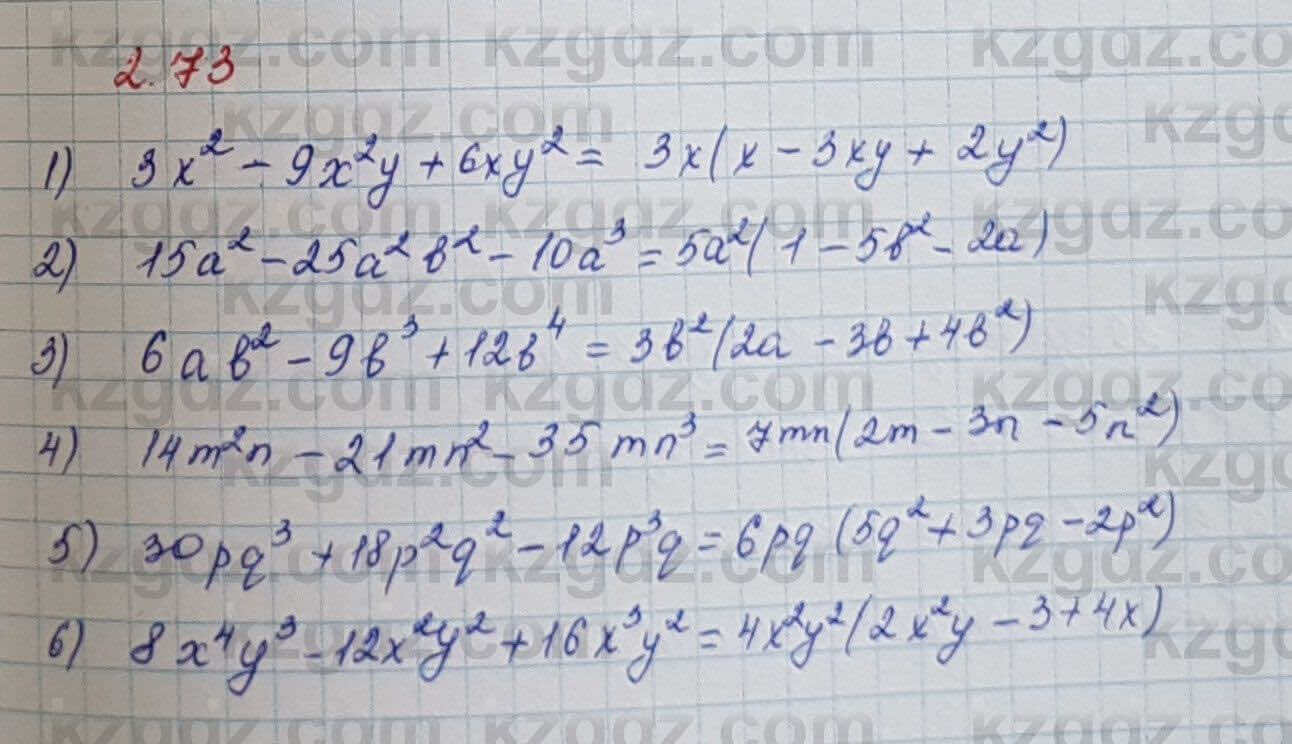 2.73
1) 3x² - 9x²y + 6xy² = 3x(x - 3xy + 2y²)
2) 15a² - 25a²в² - 10a³ = 5a²(1 - 5в² - 2a)
3) 6aв² - 9в³ + 12в⁴ = 3в²(2a - 3в + 4в²)
4) 14m²n - 21mn² - 35mn³ = 7mn(2m - 3n - 5n²)
5) 30pq³ + 18p²q² - 12p³q = 6pq(5q² + 3pq - 2p²)
6) 8x⁴y³ - 12x²y² + 16x³y² = 4x²y²(2x²y - 3 + 4x)
kzgdz.com